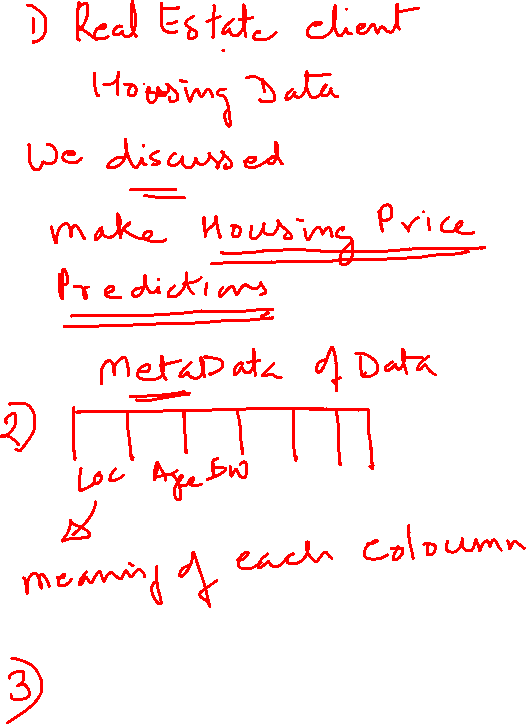 1) Real Estate client
Housing Data
We discussed
make Housing Price
Predictions
MetaData of Data
2)
Loc Age
meaning of each coloumn
3)